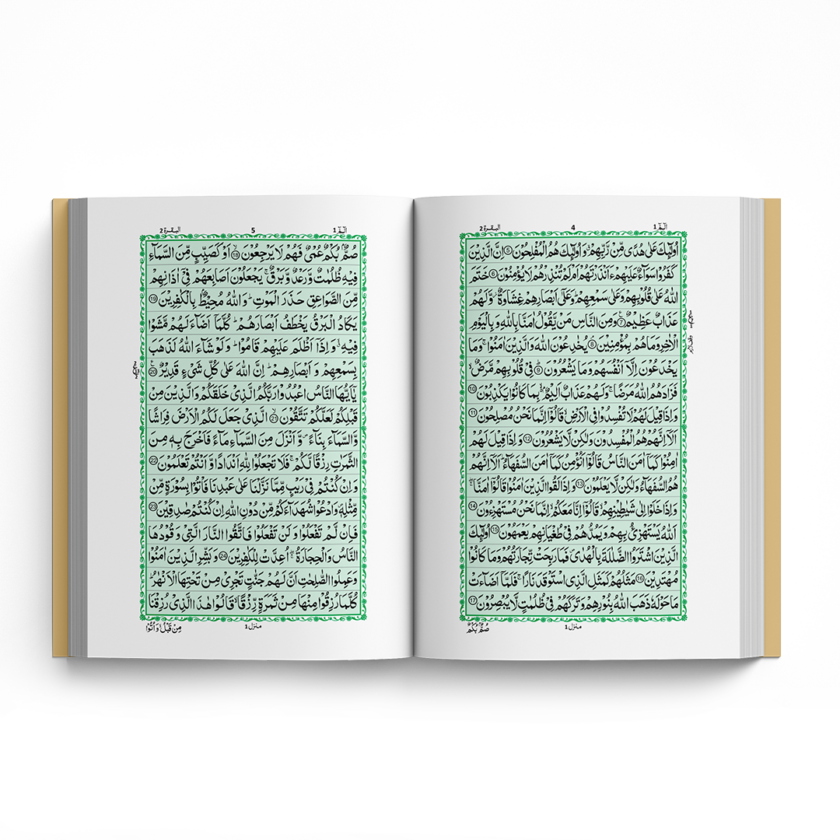 البقرة 2
4
الٓمّٓ 1
اُولٰٓئِكَ عَلٰى هُدًى مِّنْ رَّبِّهِمْ وَ اُولٰٓئِكَ هُمُ الْمُفْلِحُوْنَ ۝۵ اِنَّ الَّذِيْنَ
كَفَرُوْا سَوَآءٌ عَلَيْهِمْ ءَاَنْذَرْتَهُمْ اَمْ لَمْ تُنْذِرْهُمْ لَا يُؤْمِنُوْنَ ۝۶ خَتَمَ
اللّٰهُ عَلٰى قُلُوْبِهِمْ وَعَلٰى سَمْعِهِمْ ؕ وَعَلٰٓى اَبْصَارِهِمْ غِشَاوَةٌ ؗ وَّلَهُمْ
عَذَابٌ عَظِيْمٌ ۝۷ وَمِنَ النَّاسِ مَنْ يَّقُوْلُ اٰمَنَّا بِاللّٰهِ وَ بِالْيَوْمِ
الْاٰخِرِ وَمَا هُمْ بِمُؤْمِنِيْنَ ۝۸ يُخٰدِعُوْنَ اللّٰهَ وَالَّذِيْنَ اٰمَنُوْا ۚ وَمَا
يَخْدَعُوْنَ اِلَّاۤ اَنْفُسَهُمْ وَمَا يَشْعُرُوْنَ ۝۹ فِيْ قُلُوْبِهِمْ مَّرَضٌ ۙ
فَزَادَهُمُ اللّٰهُ مَرَضًا ۚ وَلَهُمْ عَذَابٌ اَلِيْمٌۢ ۙ بِمَا كَانُوْا يَكْذِبُوْنَ ۝۱۰
وَاِذَا قِيْلَ لَهُمْ لَا تُفْسِدُوْا فِي الْاَرْضِ ۙ قَالُوْۤا اِنَّمَا نَحْنُ مُصْلِحُوْنَ ۝۱۱
اَلَاۤ اِنَّهُمْ هُمُ الْمُفْسِدُوْنَ وَلٰكِنْ لَّا يَشْعُرُوْنَ ۝۱۲ وَاِذَا قِيْلَ لَهُمْ
اٰمِنُوْا كَمَاۤ اٰمَنَ النَّاسُ قَالُوْۤا اَنُؤْمِنُ كَمَاۤ اٰمَنَ السُّفَهَآءُ ؕ اَلَاۤ اِنَّهُمْ
هُمُ السُّفَهَآءُ وَلٰكِنْ لَّا يَعْلَمُوْنَ ۝۱۳ وَاِذَا لَقُوا الَّذِيْنَ اٰمَنُوْا قَالُوْۤا اٰمَنَّا ۖۚ
وَاِذَا خَلَوْا اِلٰى شَيٰطِيْنِهِمْ ۙ قَالُوْۤا اِنَّا مَعَكُمْ ۙ اِنَّمَا نَحْنُ مُسْتَهْزِءُوْنَ ۝۱۴
اَللّٰهُ يَسْتَهْزِئُ بِهِمْ وَيَمُدُّهُمْ فِيْ طُغْيَانِهِمْ يَعْمَهُوْنَ ۝۱۵ اُولٰٓئِكَ
الَّذِيْنَ اشْتَرَوُا الضَّلٰلَةَ بِالْهُدٰى ۪ فَمَا رَبِحَتْ تِّجَارَتُهُمْ وَمَا كَانُوْا
مُهْتَدِيْنَ ۝۱۶ مَثَلُهُمْ كَمَثَلِ الَّذِي اسْتَوْقَدَ نَارًا ۚ فَلَمَّاۤ اَضَآءَتْ
مَا حَوْلَهٗ ذَهَبَ اللّٰهُ بِنُوْرِهِمْ وَتَرَكَهُمْ فِيْ ظُلُمٰتٍ لَّا يُبْصِرُوْنَ ۝۱۷
منزل 1
صُمٌّۢ بُكْمٌ
البقرة 2
5
الٓمّٓ 1
صُمٌّۢ بُكْمٌ عُمْيٌ فَهُمْ لَا يَرْجِعُوْنَ ۝۱۸ اَوْ كَصَيِّبٍ مِّنَ السَّمَآءِ
فِيْهِ ظُلُمٰتٌ وَّرَعْدٌ وَّ بَرْقٌ ۚ يَجْعَلُوْنَ اَصَابِعَهُمْ فِيْۤ اٰذَانِهِمْ
مِّنَ الصَّوَاعِقِ حَذَرَ الْمَوْتِ ؕ وَاللّٰهُ مُحِيْطٌۢ بِالْكٰفِرِيْنَ ۝۱۹
يَكَادُ الْبَرْقُ يَخْطَفُ اَبْصَارَهُمْ ؕ كُلَّمَاۤ اَضَآءَ لَهُمْ مَّشَوْا
فِيْهِ ۙ وَاِذَاۤ اَظْلَمَ عَلَيْهِمْ قَامُوْا ؕ وَلَوْ شَآءَ اللّٰهُ لَذَهَبَ
بِسَمْعِهِمْ وَ اَبْصَارِهِمْ ؕ اِنَّ اللّٰهَ عَلٰى كُلِّ شَيْءٍ قَدِيْرٌ ۝۲۰
يٰۤاَيُّهَا النَّاسُ اعْبُدُوْا رَبَّكُمُ الَّذِيْ خَلَقَكُمْ وَالَّذِيْنَ مِنْ
قَبْلِكُمْ لَعَلَّكُمْ تَتَّقُوْنَ ۝۲۱ الَّذِيْ جَعَلَ لَكُمُ الْاَرْضَ فِرَاشًا
وَّالسَّمَآءَ بِنَآءً ۪ وَّ اَنْزَلَ مِنَ السَّمَآءِ مَآءً فَاَخْرَجَ بِهٖ مِنَ
الثَّمَرٰتِ رِزْقًا لَّكُمْ ۚ فَلَا تَجْعَلُوْا لِلّٰهِ اَنْدَادًا وَّ اَنْتُمْ تَعْلَمُوْنَ ۝۲۲
وَ اِنْ كُنْتُمْ فِيْ رَيْبٍ مِّمَّا نَزَّلْنَا عَلٰى عَبْدِنَا فَاْتُوْا بِسُوْرَةٍ مِّنْ
مِّثْلِهٖ ۪ وَادْعُوْا شُهَدَآءَكُمْ مِّنْ دُوْنِ اللّٰهِ اِنْ كُنْتُمْ صٰدِقِيْنَ ۝۲۳
فَاِنْ لَّمْ تَفْعَلُوْا وَلَنْ تَفْعَلُوْا فَاتَّقُوا النَّارَ الَّتِيْ وَقُوْدُهَا
النَّاسُ وَالْحِجَارَةُ ۖۚ اُعِدَّتْ لِلْكٰفِرِيْنَ ۝۲۴ وَبَشِّرِ الَّذِيْنَ اٰمَنُوْا
وَعَمِلُوا الصّٰلِحٰتِ اَنَّ لَهُمْ جَنّٰتٍ تَجْرِيْ مِنْ تَحْتِهَا الْاَنْهٰرُ ؕ
كُلَّمَا رُزِقُوْا مِنْهَا مِنْ ثَمَرَةٍ رِّزْقًا ۙ قَالُوْا هٰذَا الَّذِيْ رُزِقْنَا
منزل 1
مِنْ قَبْلُ ۙ وَاُتُوْا